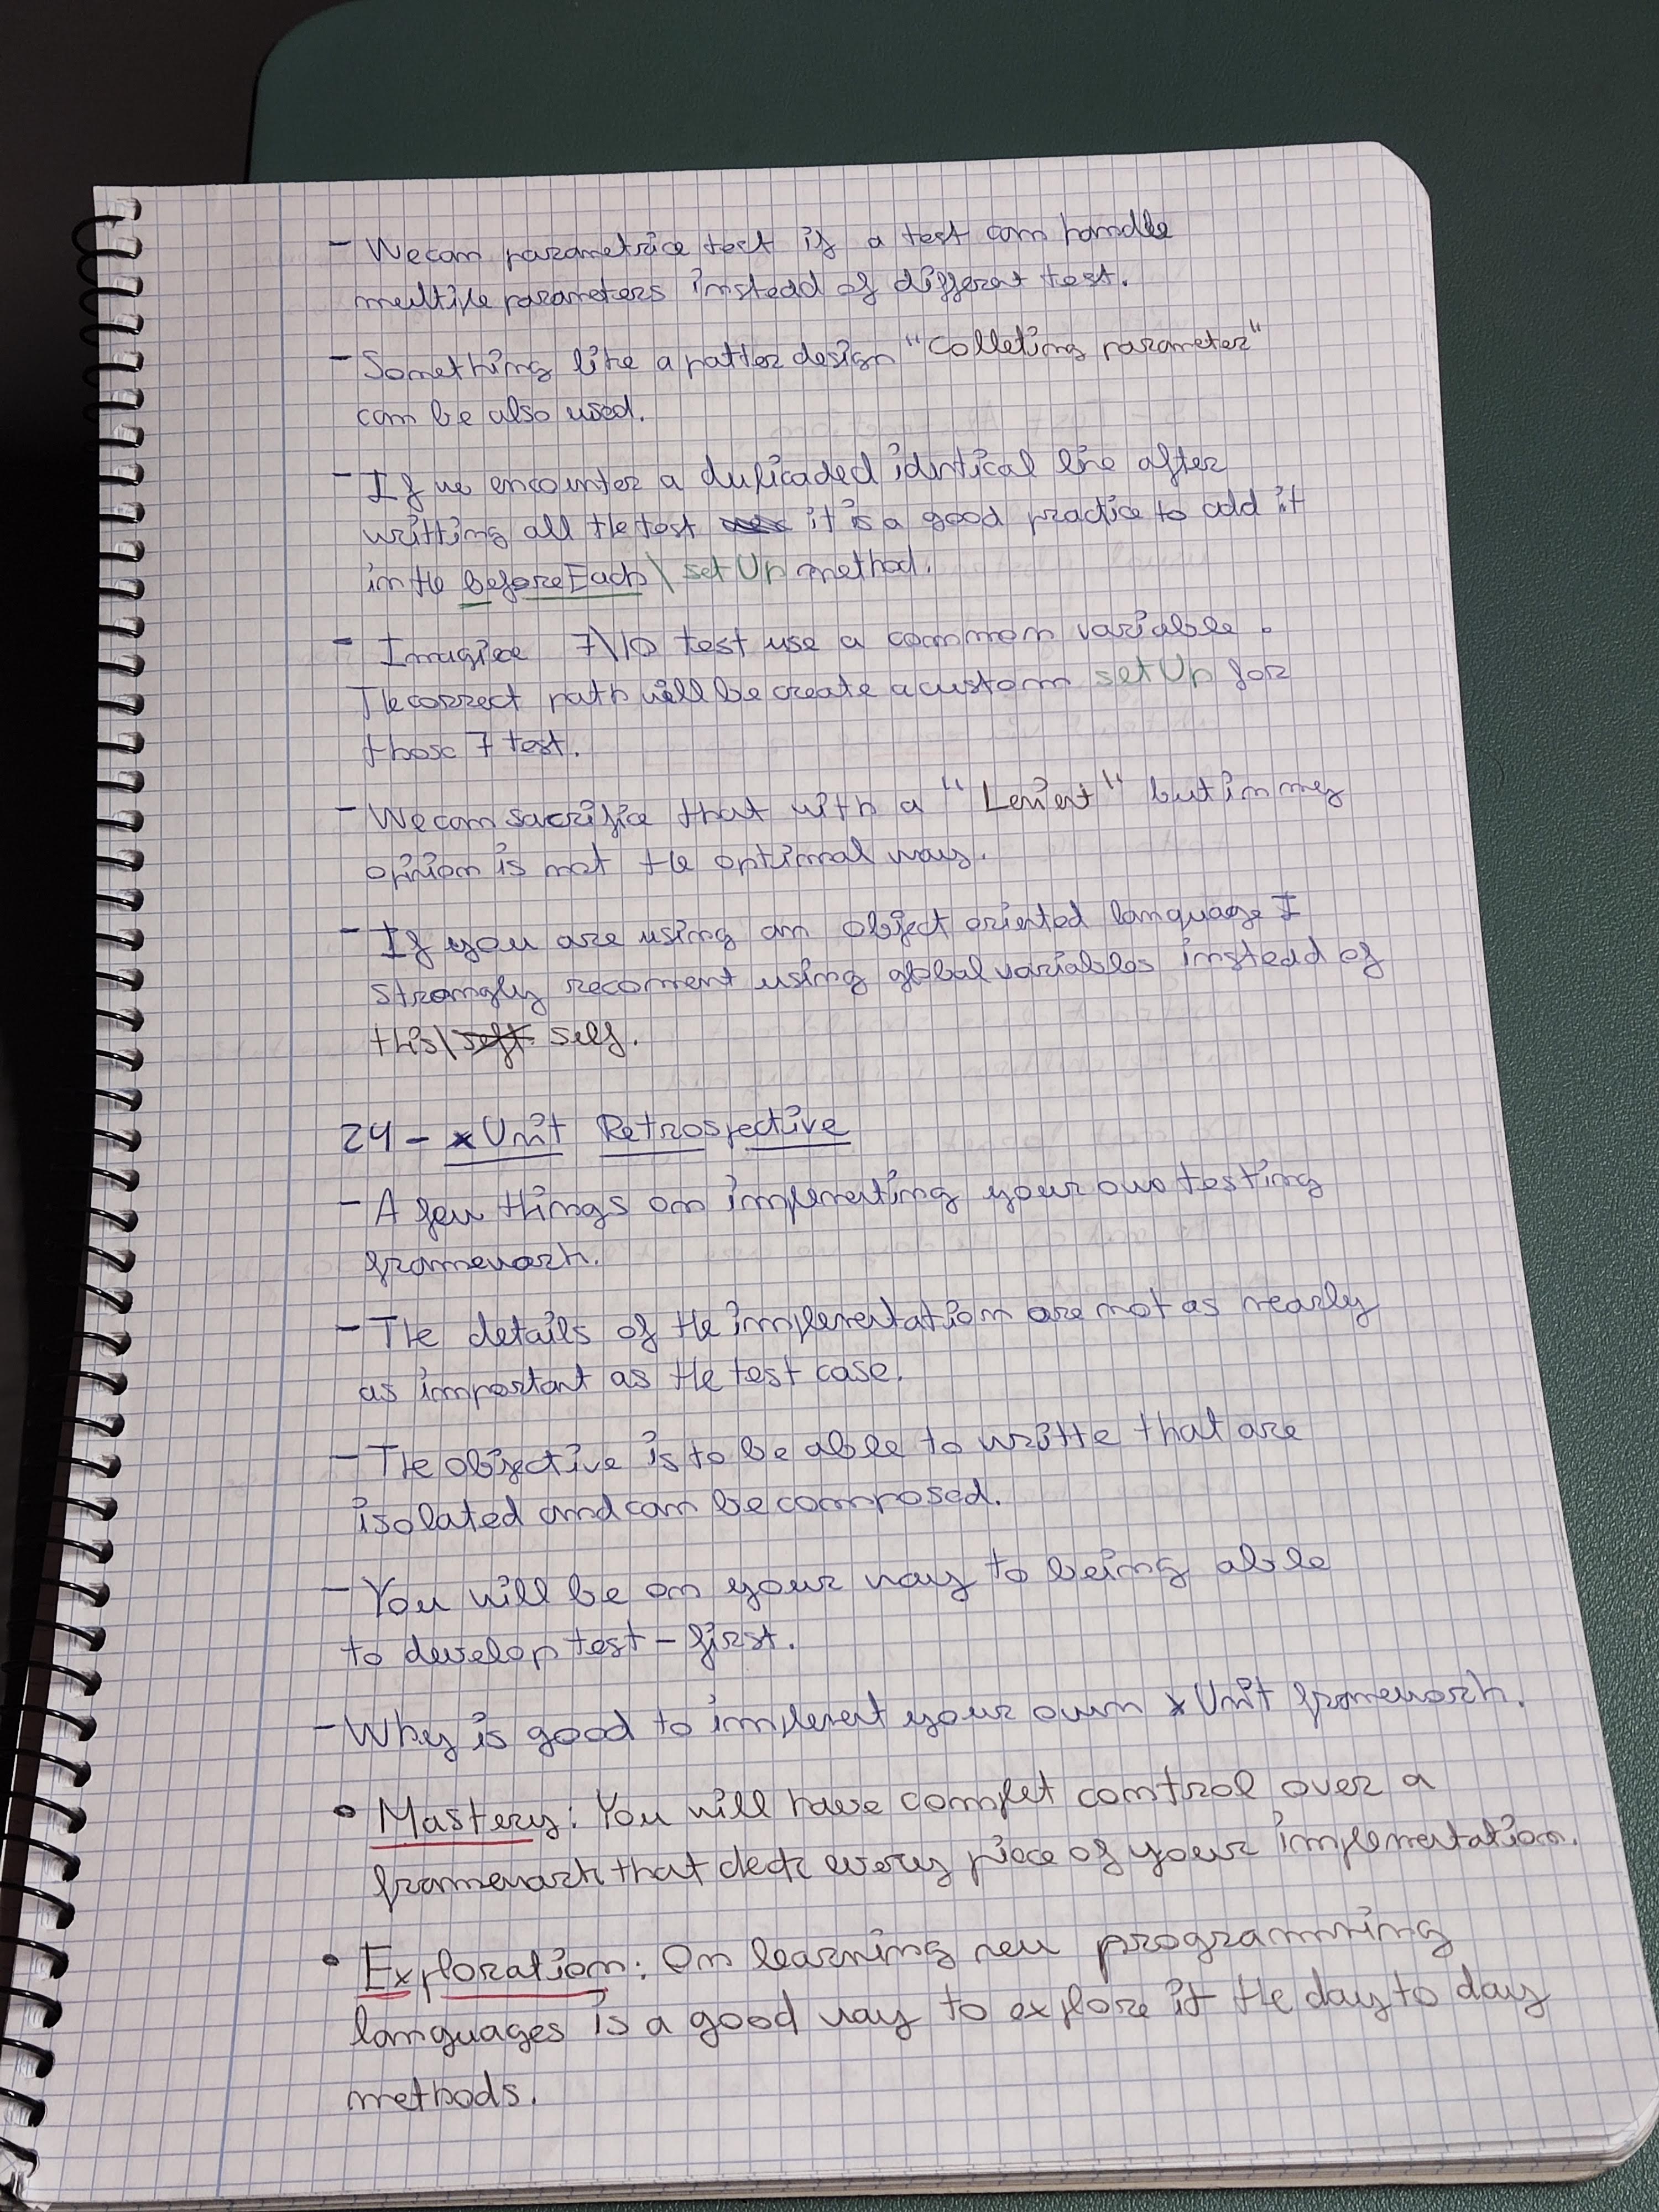 - We can parametrice test if a test can handle
multiple parameters instead of different test.
- Something like a patter design "Colleting parameter"
can be also used.
- If we encounter a duplicaded identical line after
writting all the test it is a good practice to add it
in the beforeEach\setUp method.
- Imagine 7\10 test use a common variable.
The correct path will be create a custom setUp for
those 7 test.
- We can sacrifice that with a "Lenient" but in my
opinion is not the optimal way.
- If you are using an object oriented language I
strongly recoment using global variables instead of
this\self.
24 - xUnit Retrospective
- A few things on implementing your own testing
framework.
- The details of the implementation are not as nearly
as important as the test case.
- The objective is to be able to writte that are
isolated and can be composed.
- You will be on your way to being able
to develop test-first.
- Why is good to implement your own xUnit framework.
• Mastery: You will have complet control over a
framework that check every piece of your implementation.
• Exploration: On learning new programming
languages is a good way to explore it the day to day
methods.